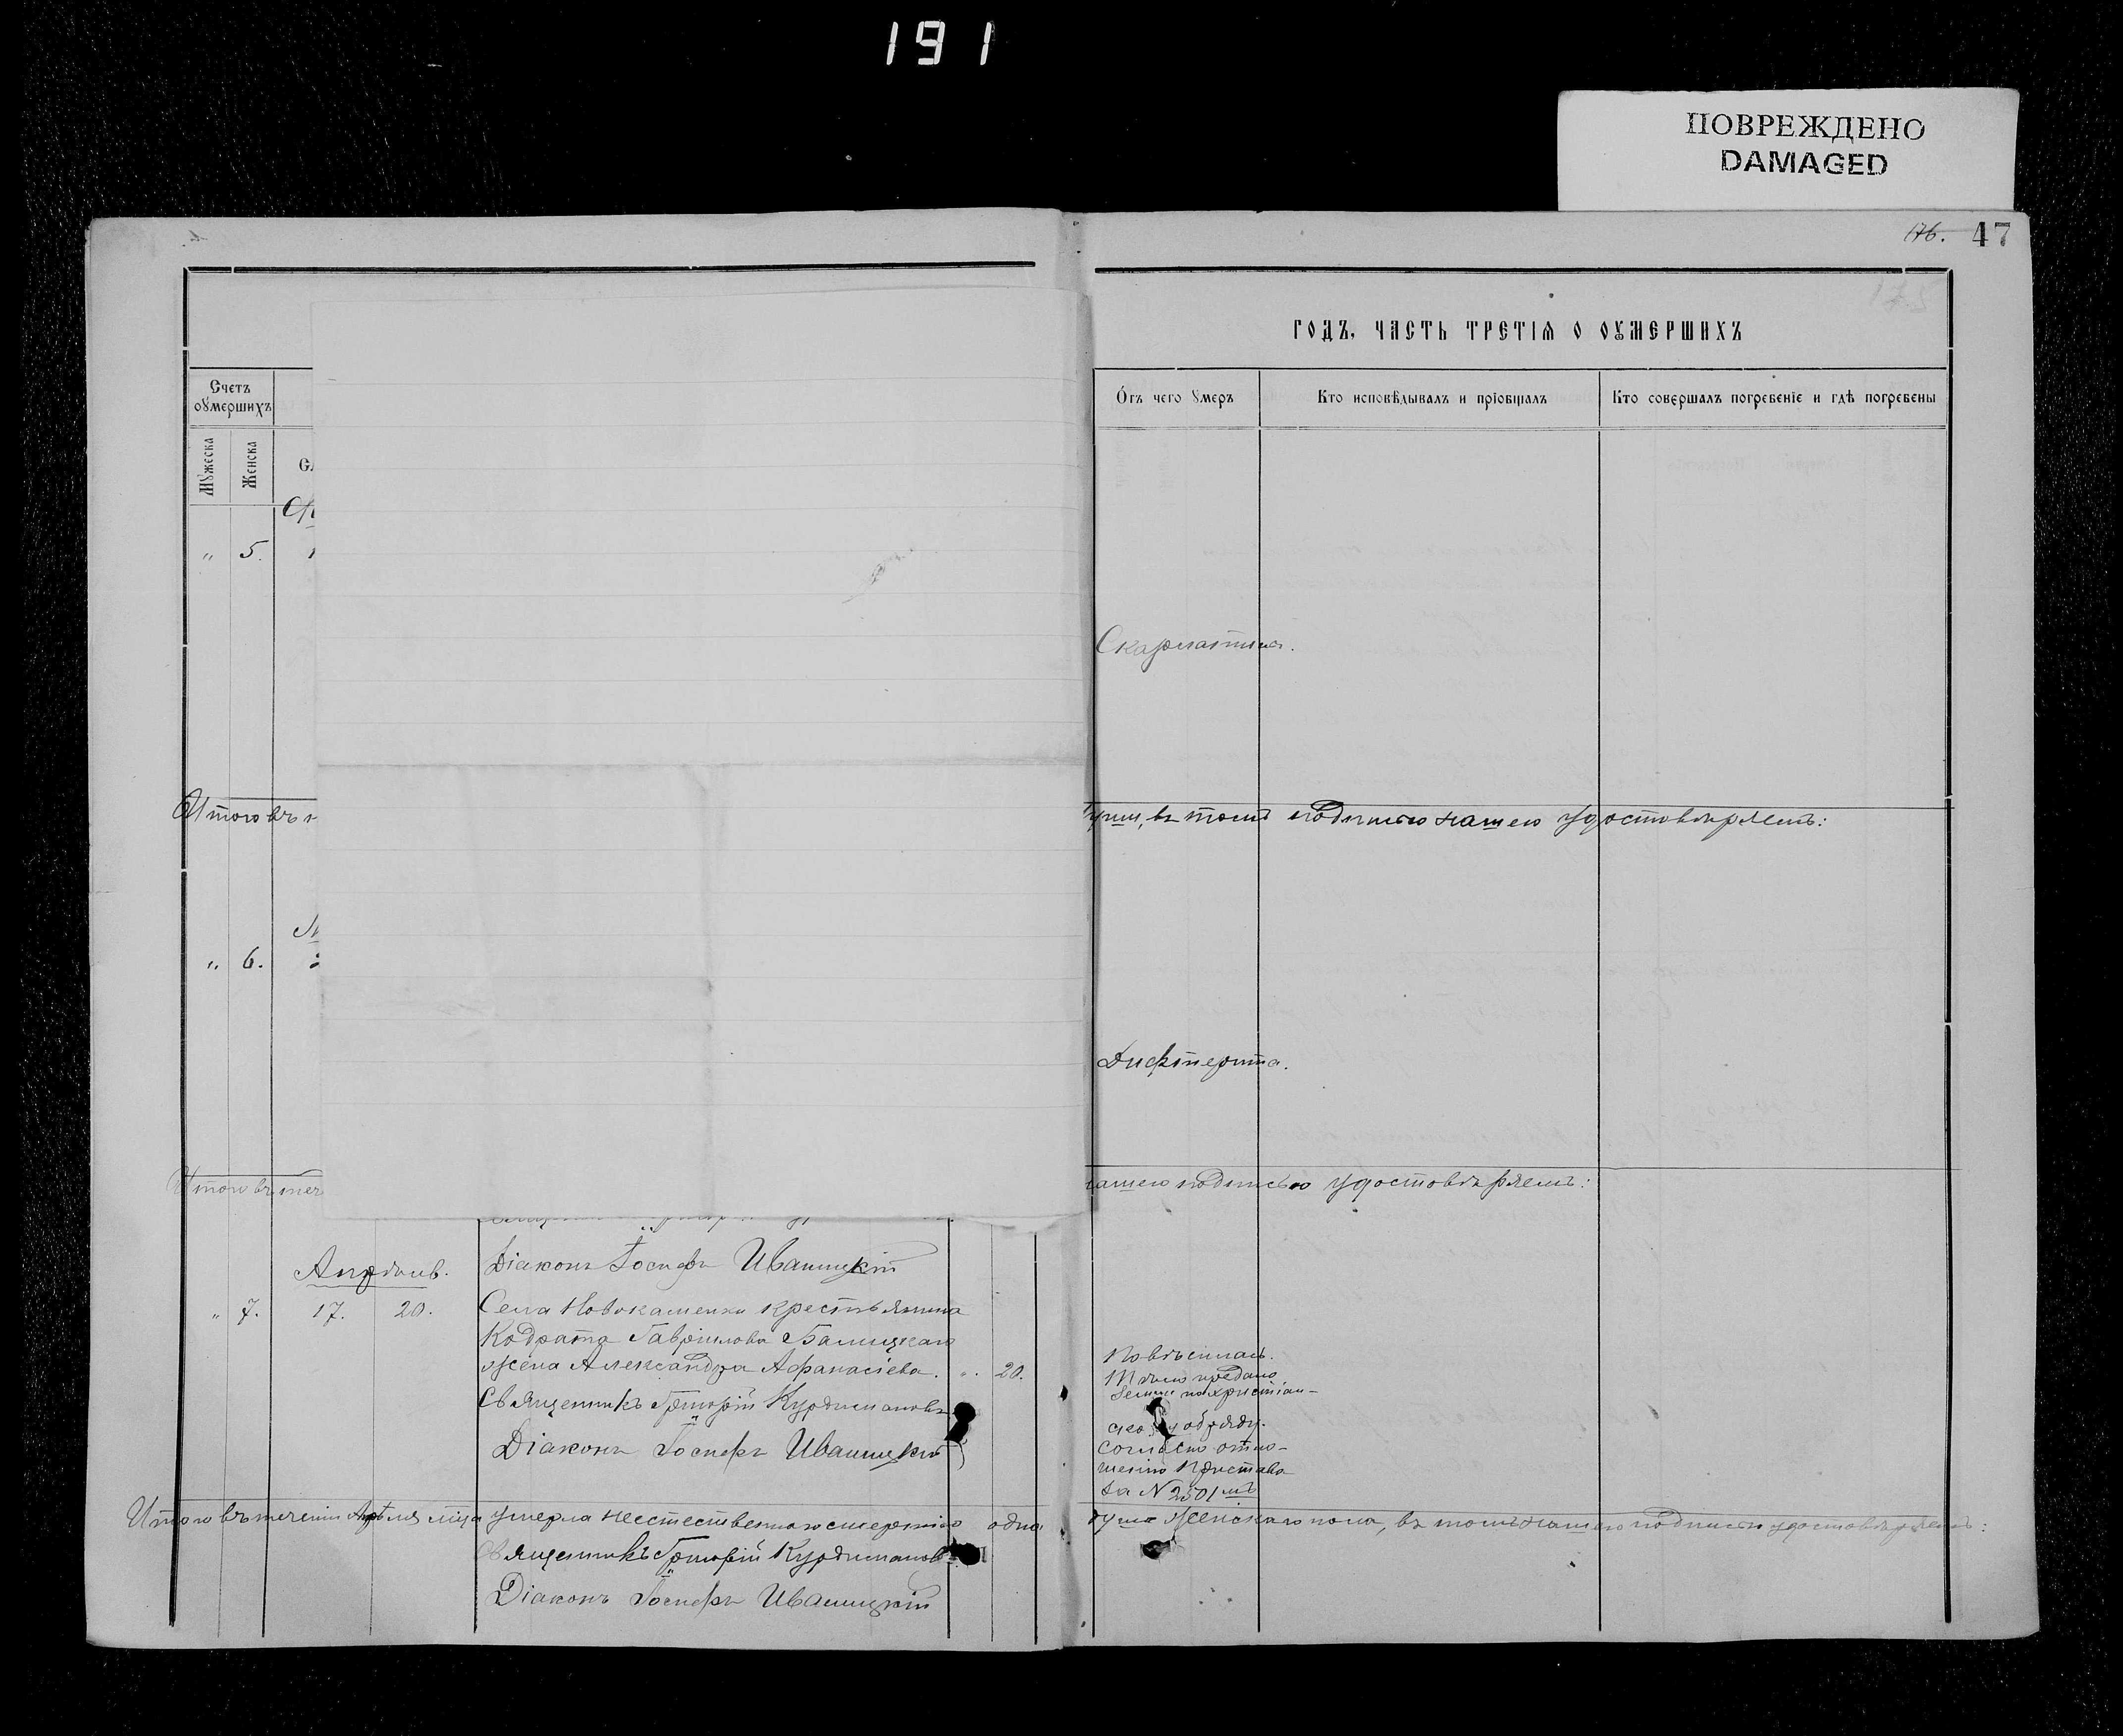 191
ПОВРЕЖДЕНО
DAMAGED
176. 47
175
ГОДЪ, ЧАСТЬ ТРЕТІѦ О ОУМЕРШИХЪ
Счетъ оумершихъ
Мужеска
Женска
Отъ чего умеръ
Кто исповѣдывалъ и пріобщалъ
Кто совершалъ погребеніе и гдѣ погребены
„ 5.
Скарлатина.
Итого въ
души, въ томъ подписью нашею удостовѣряемъ:
„ 6.
Дифтерита.
Итого въ теч
нашею подписью удостовѣряемъ:
Діаконъ Іосифъ Иваницкій
Апрѣль.
„ 7. 17. 20.
Села Новокаменки крестьянина
Кодрата Гавріилова Балицкаго
жена Александра Афанасіева. „ 20.
Священникъ Григорій Курдимановъ
Діаконъ Іосифъ Иваницкій
Повѣсилась.
Тѣло предано
земли по христіан-
ско обряду.
Согласно отно-
шенію Пристава
за N 2501мъ
Итого въ теченіи Апрѣля м̃ца умерла неестественною смертію одна душа женскаго пола, въ томъ нашею подписью удостовѣряемъ:
Священникъ Григорій Курдимановъ
Діаконъ Іосифъ Иваницкій